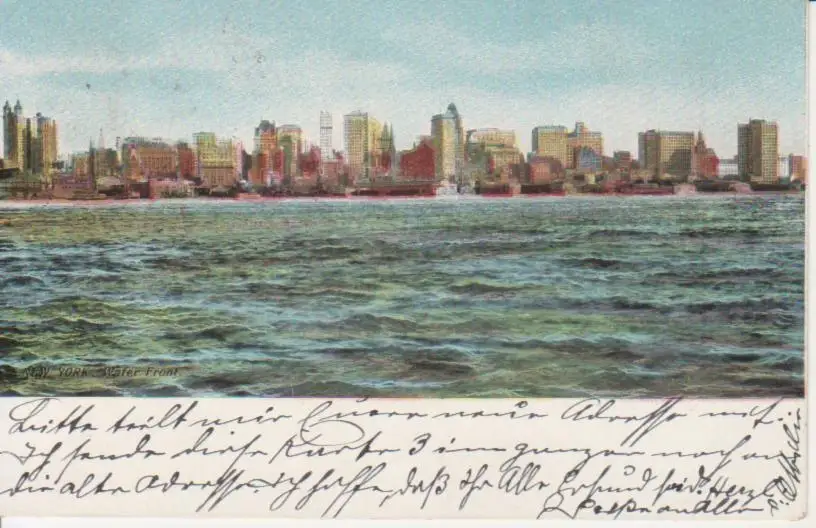 NEW YORK. Water Front
Bitte teilt mir Euere neue Adresse mit.
Ich sende diese Karte 3 im ganzen noch an
die alte Adresse. Ich hoffe, daß Ihr Alle Gesund seid. Herzl.
an Alle